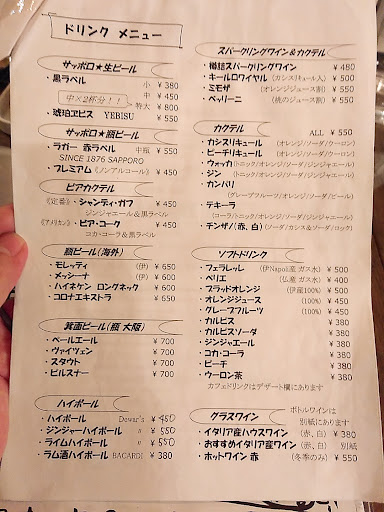 ドリンク メニュー
サッポロ★生ビール
・黒ラベル 小 ¥ 380
中 ¥ 450
中×2杯分!! 特大 ¥ 800
・琥珀ヱビス YEBISU ¥ 550
サッポロ★瓶ビール
・ラガー 赤ラベル 中瓶 ¥ 550
SINCE 1876 SAPPORO
・プレミアム《ノンアルコール》 ¥ 450
ビアカクテル
《定番》・シャンディ・ガフ ¥ 450
ジンジャエール&黒ラベル
《アメリカン》・ビア・コーク ¥ 450
コカ・コーラ&黒ラベル
瓶ビール(海外)
・モレッティ (伊) ¥ 650
・メッシーナ (伊) ¥ 600
・ハイネケン ロングネック ¥ 600
・コロナエキストラ ¥ 650
箕面ビール(瓶 大阪)
・ペールエール ¥ 700
・ヴァイツェン ¥ 700
・スタウト ¥ 700
・ピルスナー ¥ 700
ハイボール
・ハイボール Dewar's ¥ 450
・ジンジャーハイボール 〃 ¥ 550
・ライムハイボール 〃 ¥ 550
・ラム酒ハイボール BACARDI ¥ 380
スパークリングワイン&カクテル
・樽詰スパークリングワイン ¥ 480
・キールロワイヤル (カシスリキュール入) ¥ 500
・ミモザ (オレンジジュース割) ¥ 550
・ベッリーニ (桃のジュース割) ¥ 550
カクテル ALL ¥ 550
・カシスリキュール (オレンジ/ソーダ/ウーロン)
・ピーチリキュール (オレンジ/ソーダ/ウーロン)
・ウォッカ(トニック/オレンジ/ソーダ/ジンジャエール)
・ジン (トニック/オレンジ/ソーダ/ジンジャエール)
・カンパリ
(グレープフルーツ/オレンジ/ソーダ/ビール)
・テキーラ
(コーラ/トニック/オレンジ/ソーダ/ジンジャエール)
・チンザノ(赤、白)(ソーダ/カシス&ソーダ/ロック)
ソフトドリンク
・フェラレッレ (伊Napoli産 ガス水) ¥ 500
・ペリエ (仏産 ガス水) ¥ 400
・ブラッドオレンジ (伊産100%) ¥ 450
・オレンジジュース (100%) ¥ 450
・グレープフルーツ (100%) ¥ 450
・カルピス ¥ 380
・カルピスソーダ ¥ 380
・ジンジャエール ¥ 380
・コカ・コーラ ¥ 380
・ピーチ ¥ 380
・ウーロン茶 ¥ 380
カフェドリンクはデザート欄にあります
グラスワイン ボトルワインは
別紙にあります
・イタリア産ハウスワイン (赤、白) ¥ 380
・おすすめイタリア産ワイン(赤、白) 別紙
・ホットワイン 赤 (冬季のみ) ¥ 550